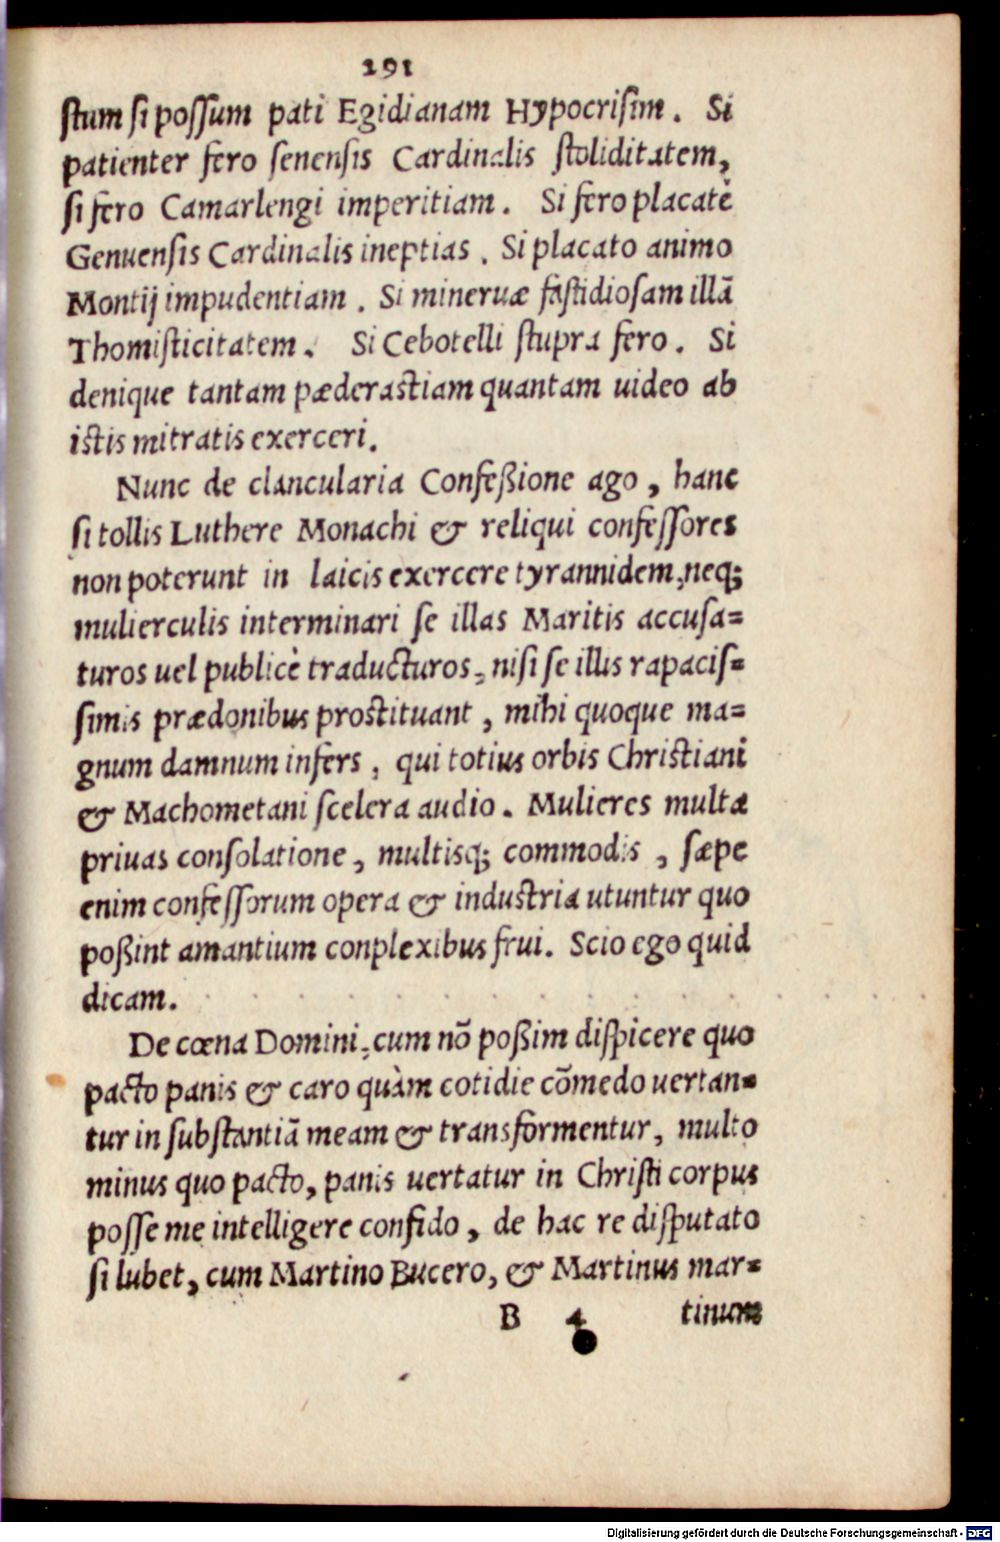 291
ſtum ſi poſſum pati Egidianam Hypocriſim. Si
patienter fero ſenenſis Cardinalis ſtoliditatem,
ſi fero Camarlengi imperitiam. Si fero placatè
Genuenſis Cardinalis ineptias. Si placato animo
Montij impudentiam. Si mineruæ faſtidioſam illā
Thomiſticitatem. Si Cebotelli ſtupra fero. Si
denique tantam pæderaſtiam quantam uideo ab
iſtis mitratis exerceri.
Nunc de clancularia Confeßione ago, hanc
ſi tollis Luthere Monachi & reliqui confeſſores
non poterunt in laicis exercere tyrannidem, neq;
mulierculis interminari ſe illas Maritis accuſa=
turos uel publicè traducturos, niſi ſe illis rapaciſ=
ſimis prædonibus proſtituant, mihi quoque ma=
gnum damnum infers, qui totius orbis Chriſtiani
& Machometani ſcelera audio. Mulieres multa
priuas conſolatione, multisq; commodis, ſæpe
enim confeſſorum opera & induſtria utuntur quo
poßint amantium conplexibus frui. Scio ego quid
dicam.
De cœna Domini, cum nō poßim diſpicere quo
pacto panis & caro quàm cotidie cōmedo uertan=
tur in ſubſtantiā meam & transformentur, multo
minus quo pacto, panis uertatur in Chriſti corpus
poſſe me intelligere confido, de hac re diſputato
ſi lubet, cum Martino Bucero, & Martinus mar=
B 4 tinum
Digitalisierung gefördert durch die Deutsche Forschungsgemeinschaft - DFG